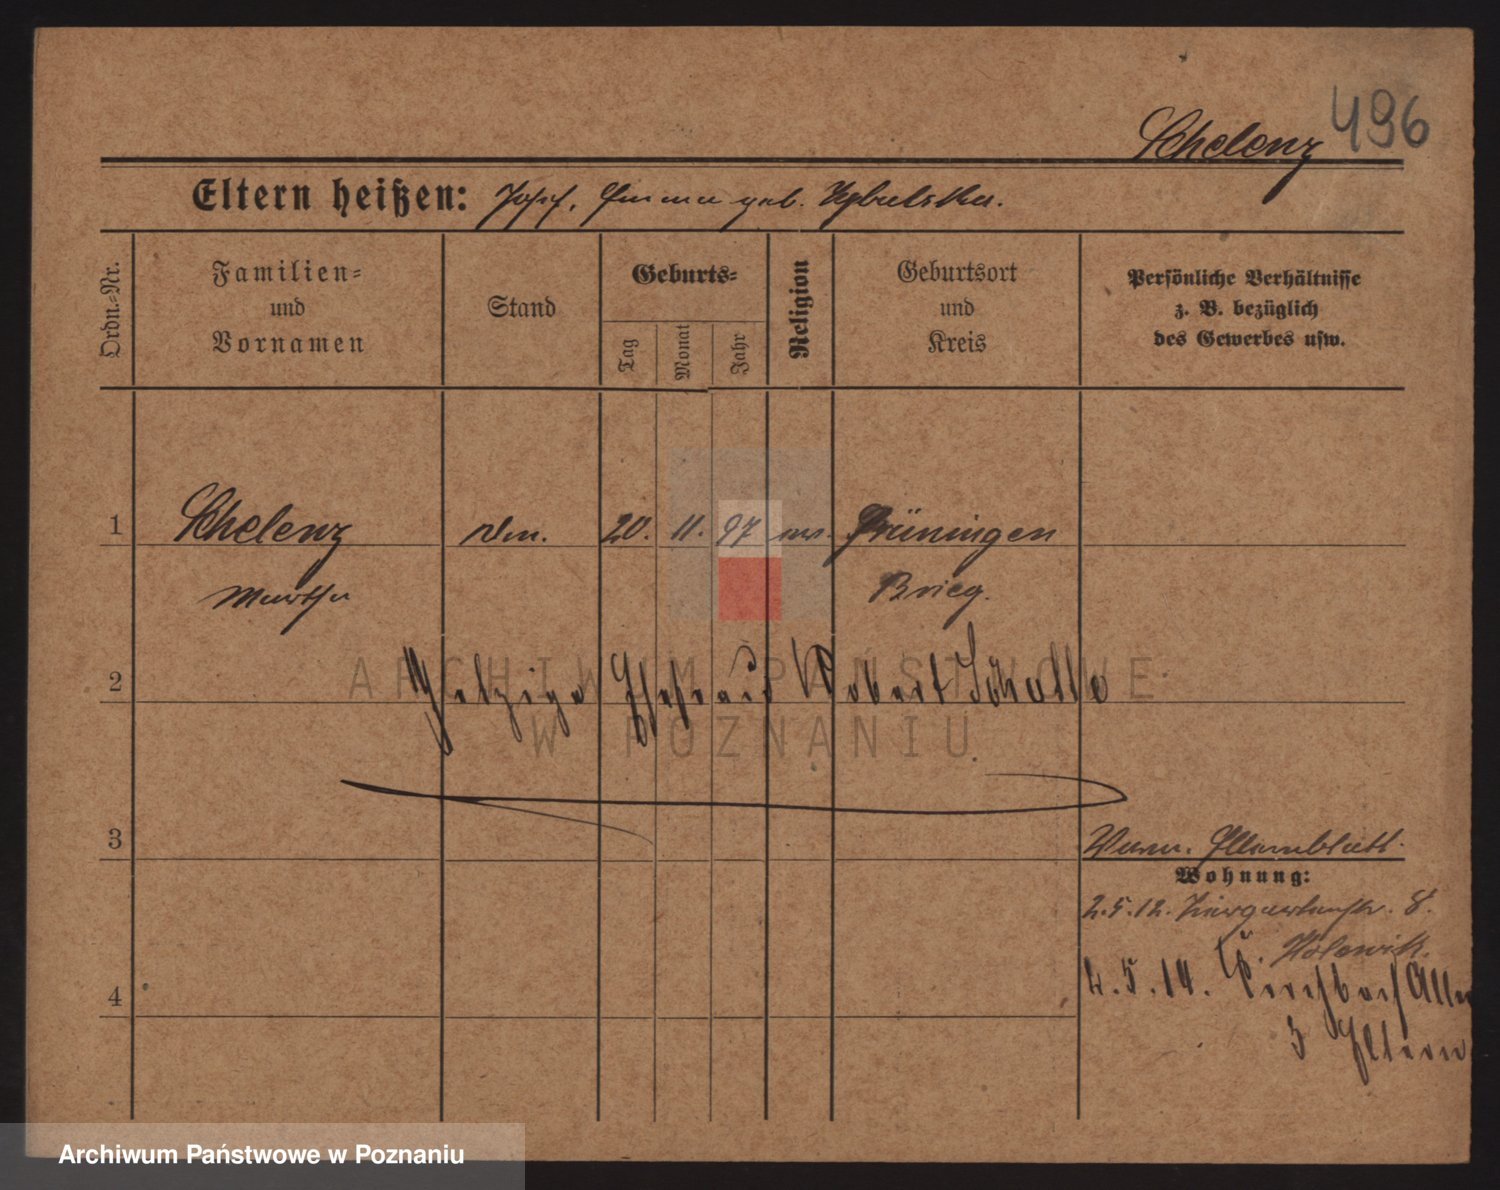 Schelenz 496
Eltern heißen: Josef, Emma geb.
Ordn.-Nr.
Familien-
und
Vornamen
Stand
Geburts-
Tag
Monat
Jahr
Religion
Geburtsort
und
Kreis
Persönliche Verhältnisse
z. B. bezüglich
des Gewerbes usw.
1 Schelenz 20. 11. 97 Grüningen
Martha Brieg.
2 Jetzige Ehefrau Robert Schulz
3
Elternblatt.
Wohnung:
2.5.12. Tiergartenstr. 8.
4
z. Eltern
ARCHIWUM PAŃSTWOWE
W POZNANIU
Archiwum Państwowe w Poznaniu